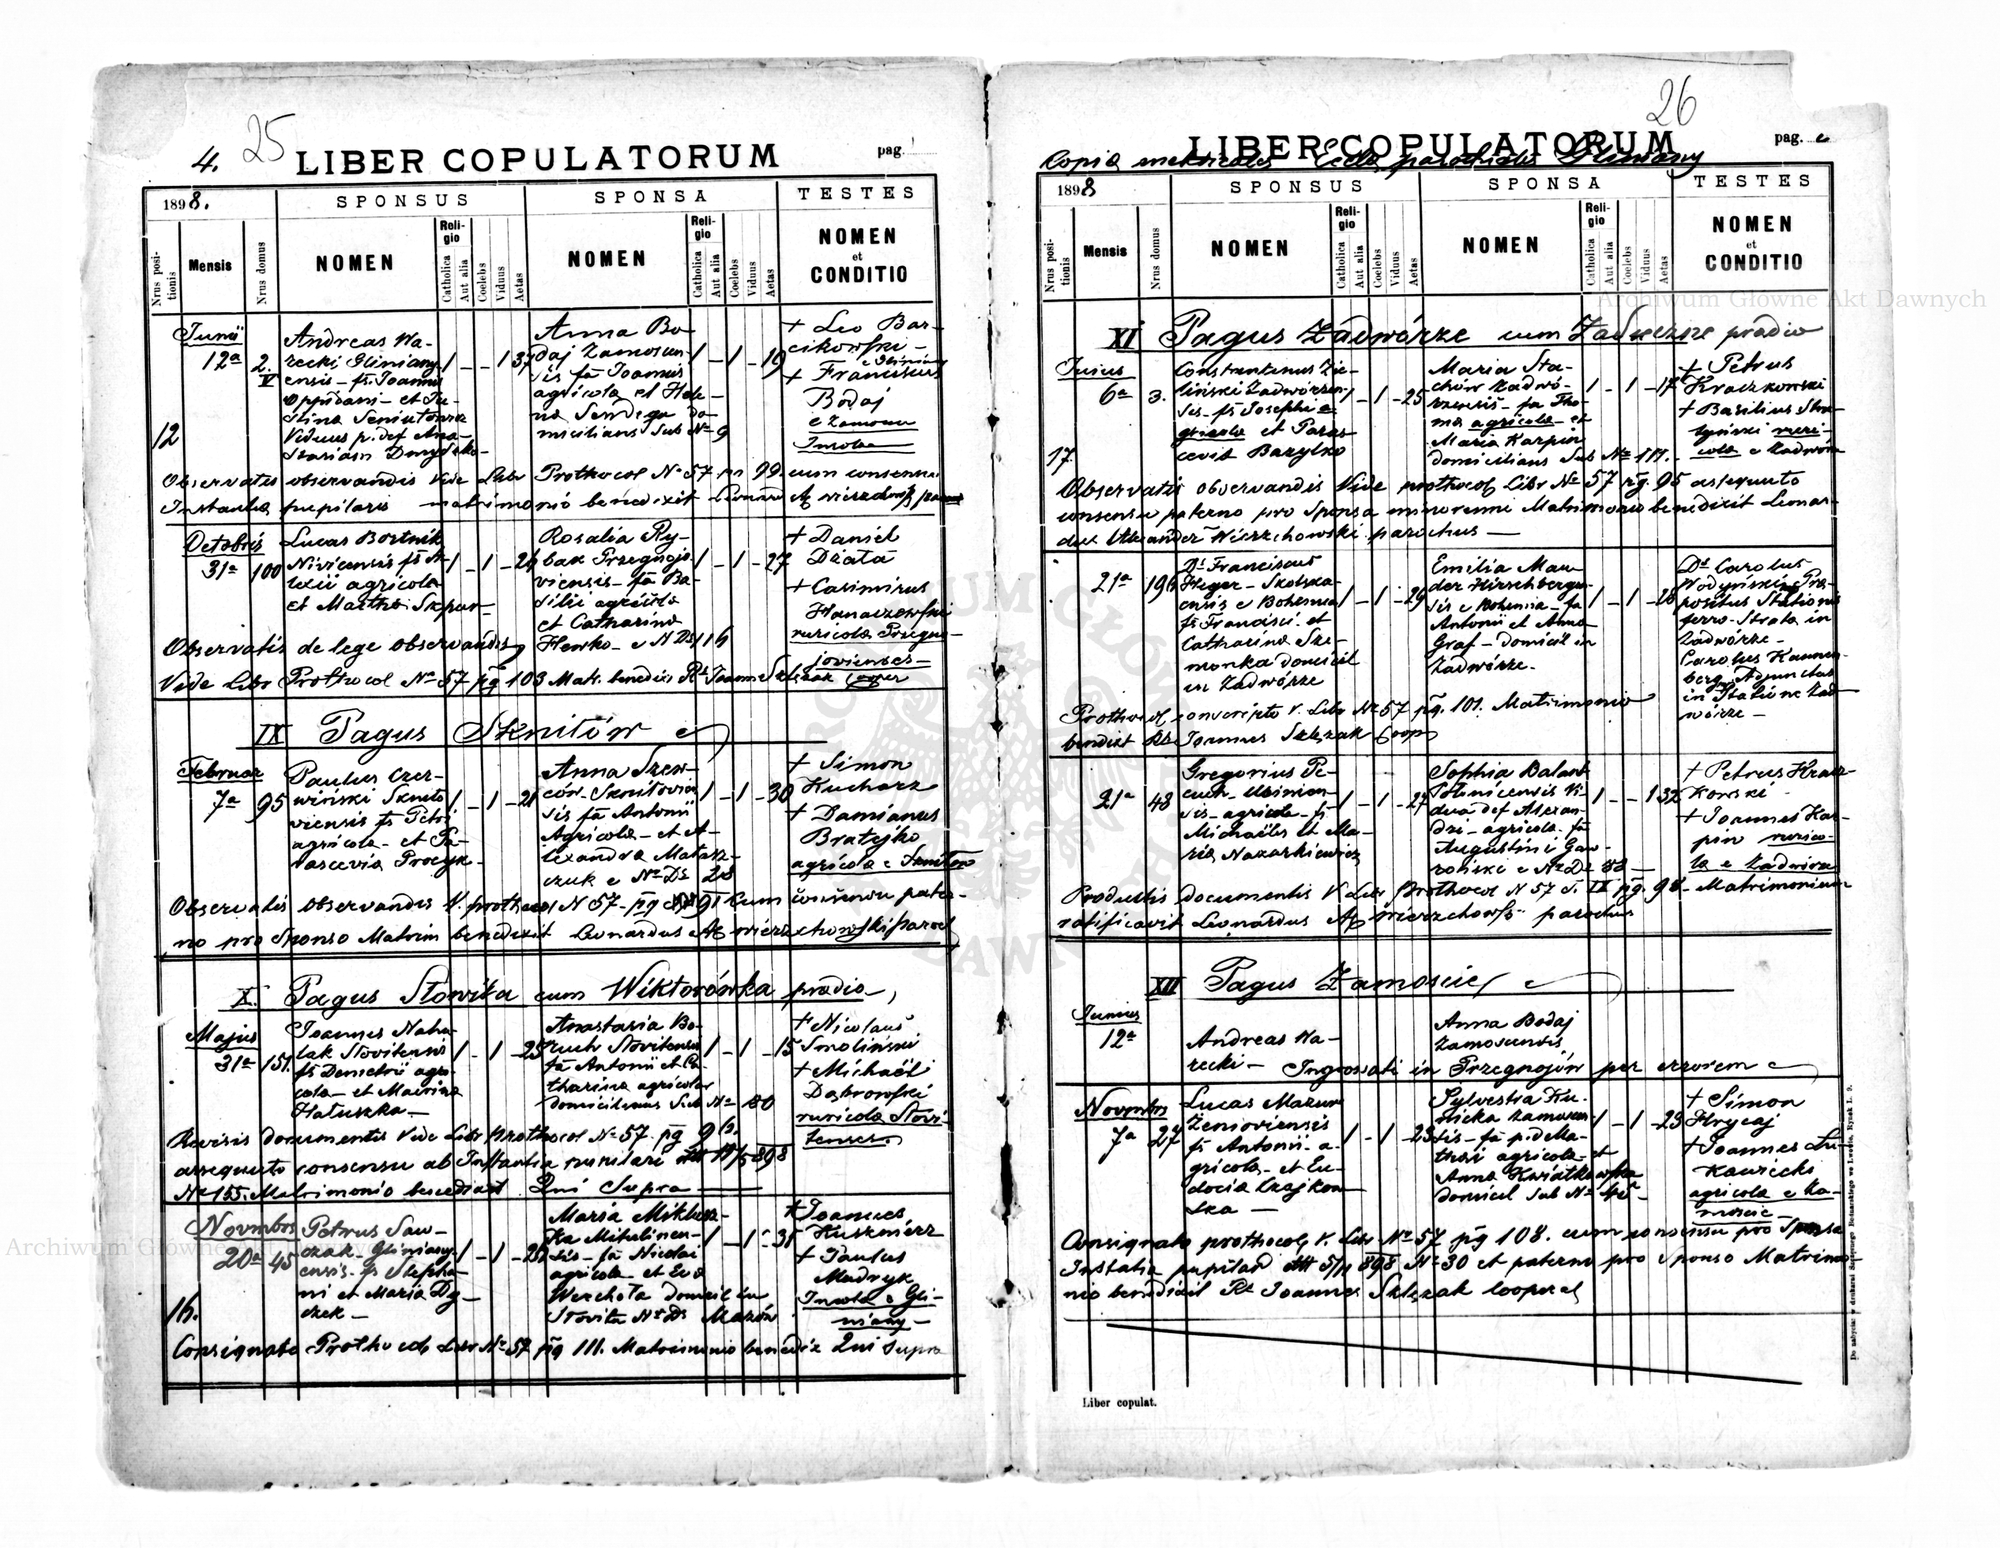 4. 25 LIBER COPULATORUM pag.
1898. SPONSUS SPONSA TESTES
Nrus positionis Mensis Nrus domus NOMEN Religio Catholica Aut alia Coelebs Viduus Aetas NOMEN Religio Catholica Aut alia Coelebs Viduus Aetas NOMEN et CONDITIO
Junii
12a 2. V
12
Andreas Wa-
recki Gliniany-
ensis - fs Joannis
oppidani - et Ju-
stina Seniutowicz
Viduus p. def Ana-
stasiam
1 - - 1 37
Anna Bo-
daj Zamoscen-
sis fa Joannis
agricola et Hele-
na Sendega do-
micilians Sub No 9
1 - 1 - 19
+ Leo Bar-
cikowski -
e Gliniany
+ Franciscus
Bodaj
e Zamoscie
Incolae
Observatis observandis Vide Libr Prothocol No 57 pg 99. cum consensu
Instantia pupilaris matrimonio benedixit Leonard Al wierzchowski parochus
Octobris
31a 100
Lucas Bortnik
Nivicensis fs A-
lexii agricola
et Martha Szpar-
1 - 1 - 24
Rosalia Ry-
bak Przegnojo-
viensis - fa Ba-
silii agricola
et Catharina
Hewko - e N Ds 116
1 - 1 - 27
+ Daniel
Dziata
+ Casimirus
Hanaczowski
ruricola Przegno-
jovienses -
Observatis de lege observandis
Vide Libr Prothocol No 57 pg 103 Matr. benedix Rs Joann Szlęzak Cooper
IX Pagus Sknitów
Februar
7a 95
Paulus Czer-
wiński Sknito
viensis fs Petri
agricola - et Pa-
rascevia Procyk-
1 - 1 - 21
Anna Szew-
ców - Sknitovien
sis fa Antonii
Agricola - et A-
lexandra Matasz-
czuk e No Ds 28
1 - 1 - 30
+ Simon
Kucharz
+ Damianus
Bratejko
agricola e Sknitów
Observatis observandis V. prothocol N 57 - pg 91 Cum consensu pater-
no pro Sponso Matrim benedixit Leonardus Al wierzchowski paroch
X. Pagus Słowita cum Wiktorówka praedio
Majus
31a 151.
Joannes Naha-
lak Słovitensis
fs Demetrii agri-
cola - et Marina
Hałuszka -
1 - 1 - 25
Anastasia Bo-
ruch Słovitensis
fa Antonii et Ca-
tharina agricolae
domicilians Sub No 80
1 - 1 - 15
+ Nicolaus
Smoliński
+ Michaël
Dąbrowski
ruricola Słovi-
tenses
Revisis documentis Vide Libr Prothocol No 57. pg 96.
assequuto consensu ab Instantia pupilari 17/5 898
No 155. Matrimonio benedixit Qui Supra
Novmbr
20a 45
16.
Petrus Saw-
czak Gliniany-
ensis. fs Stepha-
ni et Maria Dy-
czek -
1 - 1 -
Maria Miklusz-
ka Mitulinen-
sis - fa Nicolai
agricola - et Eva
Werchoła domicil in
Słovita No Ds
1 - 1 - 31
+ Joannes
Kuśmierz
+ Paulus
Madryk
Incola e Gli-
niany -
Consignato Prothocol Libr No 57 pg 111. Matrimonio benedix Qui supra
26
LIBER COPULATORUM pag.
Copia metricales Eccla parochialis Gliniany
1898 SPONSUS SPONSA TESTES
Nrus positionis Mensis Nrus domus NOMEN Religio Catholica Aut alia Coelebs Viduus Aetas NOMEN Religio Catholica Aut alia Coelebs Viduus Aetas NOMEN et CONDITIO
XI Pagus Zadwórze cum praedio
Junius
6a 3.
17.
Constantinus Zie-
liński Zadwórzen-
sis - fs Josephi a-
gricola et Paras
cevia Bazylko
1 - 1 - 25
Maria Sta-
chów Zadwó-
rzensis - fa Tho-
ma agricola - et
Maria Karpin
domicilians Sub No 111.
1 - 1 - 17
+ Petrus
Kraczkowski
+ Basilius
ruri-
cola e Zadwórze
Observatis observandis Vide prothocol Libr No 57 pg. 95 assequuto
consensu paterno pro Sponsa minorenni Matrimonio benedixit Leonar-
dus Alexander Wierzchowski parochus -
21a 196
Ds Franciscus
Heger - Skolska-
ensis e Bohemia
fs Francisci. et
Catharina Sze-
monka domicil
in Zadwórze
1 - 1 - 29
Emilia Mau-
der Hirschbergen-
sis e Bohemia - fa
Antonii et Anna
Graf - domicil in
Zadwórze -
1 - 1 - 28
Ds Carolus
Wodyński Prae-
positus Stationis
ferro - Strata in
Zadwórze -
Carolus Kannen-
berg Adjunctus
in Statione Zad-
wórze -
Prothocol conscripto V. Libr No 57 pg. 101. Matrimonio
benedixit Rs Joannes Szlęzak Coop
21a 48
Gregorius Pe-
cuch
sis - agricola - fs
Michaëlis et Ma-
ria Nazarkiewicz
1 - 1 - 27
Sophia Balant
Vi-
dua def Alexan-
dri - agricola. fa
Augustini Gaw-
roński e No Ds 88 -
1 - - 1 32
+ Petrus Kracz-
kowski
+ Joannes Kar-
pin rurico-
la e Zadwórze
Productis documentis V. Libr Prothocol N 57 pg. 98 - Matrimonium
ratificavit Leonardus Al wierzchowski parochus
XII Pagus Zamoscie
Junius
12a
Andreas Wa-
recki -
Anna Bodaj
Zamoscensis
Ingrossati in Przegnojów per errorem
Novmbr
7a 27
Lucas Mazur
Żenioviensis
fs Antonii - a-
gricola - et Eu-
docia Czajkow-
ska -
1 - 1 - 23
Sylvestra Ku-
nicka Zamoscen
sis - fa p. d Ma-
thaei agricola - et
Anna Kwiatkowska
domicil Sub No
1 - 1 - 23
+ Simon
Hrycaj
+ Joannes Łu-
kawiecki
agricola e Za-
moscie -
Consignato prothocol V. Libr No 57 pg 108. cum consensu pro Sponsa
Instatia pupilar 898 No 30 et paterno pro Sponso Matrimo-
nio benedixit Rs Joannes Szlęzak Cooper
Liber copulat.
Do nabycia w drukarni Szczęsnego Bednarskiego we Lwowie, Rynek l. 9.
Archiwum Główne Akt Dawnych
Archiwum Główne Akt Dawnych
ARCHIWUM GŁÓWNE AKT DAWNYCH